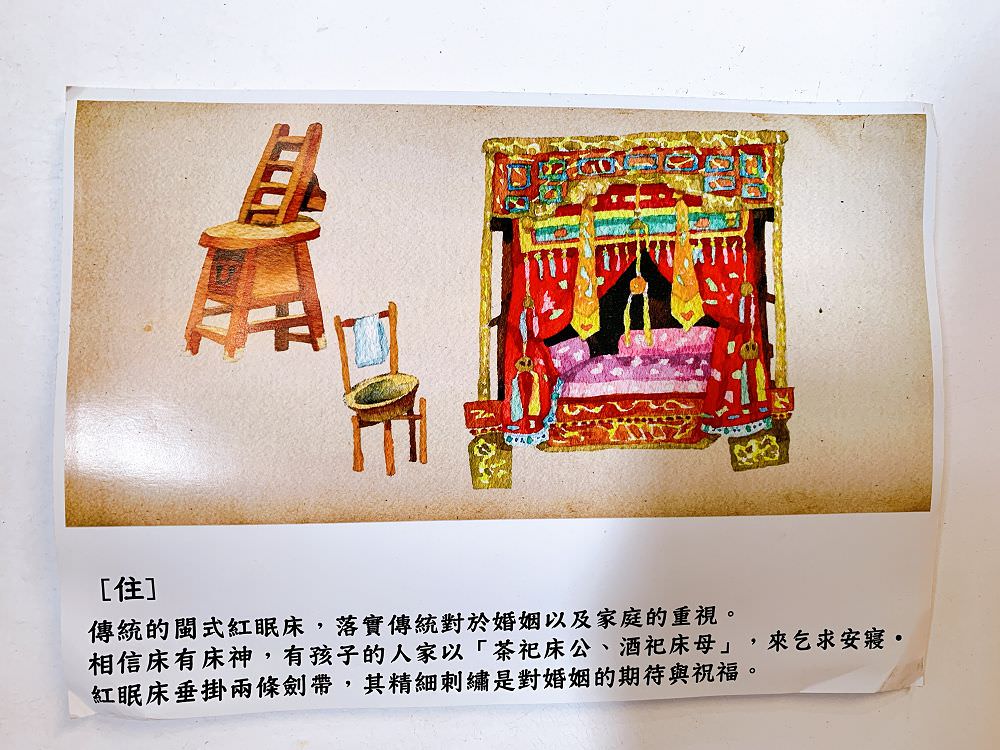 [住]
傳統的閩式紅眠床，落實傳統對於婚姻以及家庭的重視。
相信床有床神，有孩子的人家以「茶祀床公、酒祀床母」，來乞求安寢•
紅眠床垂掛兩條劍帶，其精細刺繡是對婚姻的期待與祝福。